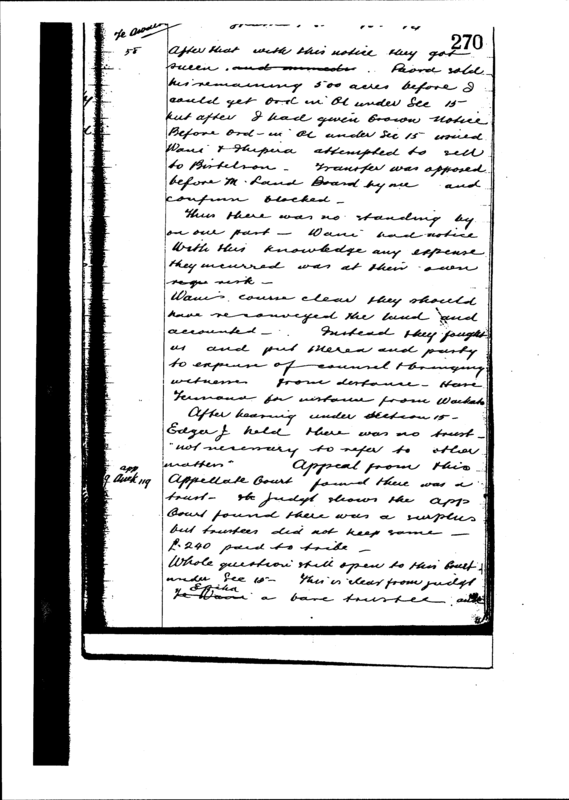 270
Te Awaen
55
After that with this notice they got
queen and Paora sold
his remaining 500 acres before I
could get Ord in Cl under Sec 15
but after I had given Brown notice
Before Ord - in Cl under Sec 15 issued
Wani & attempted to sell
to Birtelson - Transfer was opposed
before M. Land Board by me and
confirm blocked -
Thus there was no standing by
on our part - Wani had notice
With this knowledge any expense
they incurred was at their own
risk -
Wani's course clear they should
have reconveyed the land and
accounted - Instead they fought
us and put Merea and party
to expense of counsel & bringing
witnesses from distance - Have
for instance from Waikato
After hearing under Section 15 -
Edger J held there was no trust -
"not necessary to refer to other
matters" Appeal from this -
app
9 Auck 119
Appellate Court found there was a
trust - & judgt shows the app
Court found there was a surplus
but trustees did not keep same -
£240 paid to tribe -
Whole question still open to this Court
under Sec 15 - This is clear from judgt
Te Wani a bare trustee and